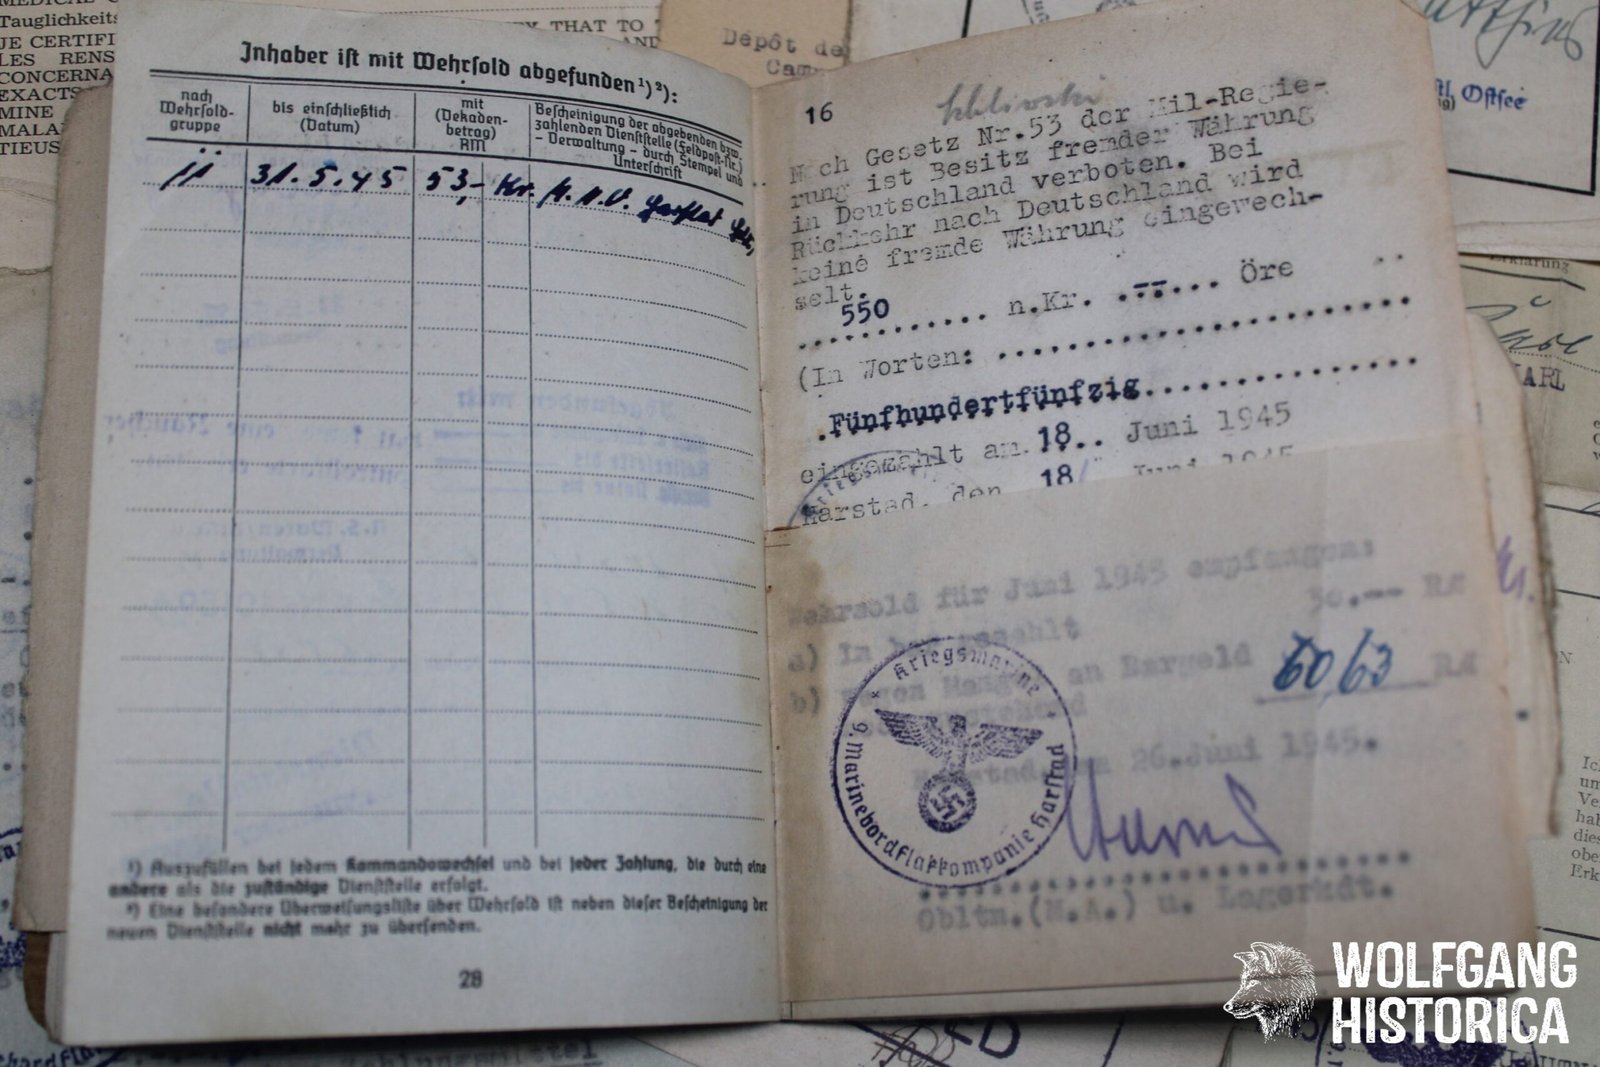 Tauglichkeits
JE CERTIFI
LES RENS
CONCERNA
EXACTS
MINE
MALA
TIEUS
THAT TO
Dépôt de
Ostsee
Erklärung
Inhaber ist mit Wehrsold abgefunden¹)²):
nach
Wehrsold-
gruppe
bis einschließlich
(Datum)
mit
(Dekaden-
betrag)
RM
Bescheinigung der abgebenden bzw.
zahlenden Dienststelle (Feldpost-Nr.)
- Verwaltung - durch Stempel und
Unterschrift
11 31.5.45 53,- Kr. M.N.V. Harstad
¹) Auszufüllen bei jedem Kommandowechsel und bei jeder Zahlung, die durch eine
andere als die zuständige Dienststelle erfolgt.
²) Eine besondere Überweisungsliste über Wehrsold ist neben dieser Bescheinigung der
neuen Dienststelle nicht mehr zu übersenden.
28
16
Nach Gesetz Nr.53 der Mil-Regie-
rung ist Besitz fremder Währung
in Deutschland verboten. Bei
Rückkehr nach Deutschland wird
keine fremde Währung eingewech-
selt.
550 n.Kr. -- Öre
(In Worten:
Fünfhundertfünfzig
eingezahlt am 18. Juni 1945
Harstad, den 18 Juni 1945
Wehrsold für Juni 1945 empfangen:
a) In bar gezahlt 30.-- RM
b) Wegen Mangel an Bargeld 60/63 RM
Harstad, am 26.Juni 1945.
Kriegsmarine
9. Marinebordflakkompanie Harstad
Obltn.(M.A.) u. Lagerkdt.
WOLFGANG
HISTORICA